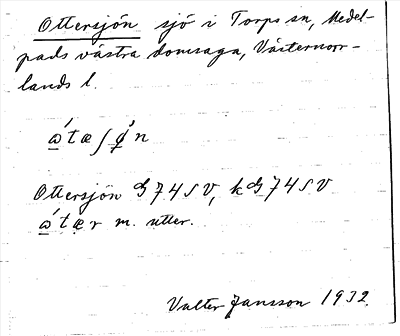 Ottersjön sjö i Torps sn, Medel-
pads västra domsaga, Västernorr-
lands l.
ώtæʃø̀n
Ottersjön G74SV, kG74SV
ώtær m. utter.
Valter Jansson 1932.